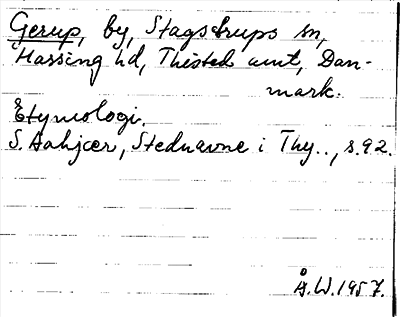 Gerup, by, Stagstrups sn,
Hassing hd, Thisted amt, Dan-
mark.
Etymologi.
S. Aakjær, Stednavne i Thy.., s.92.
Å.W.1957.